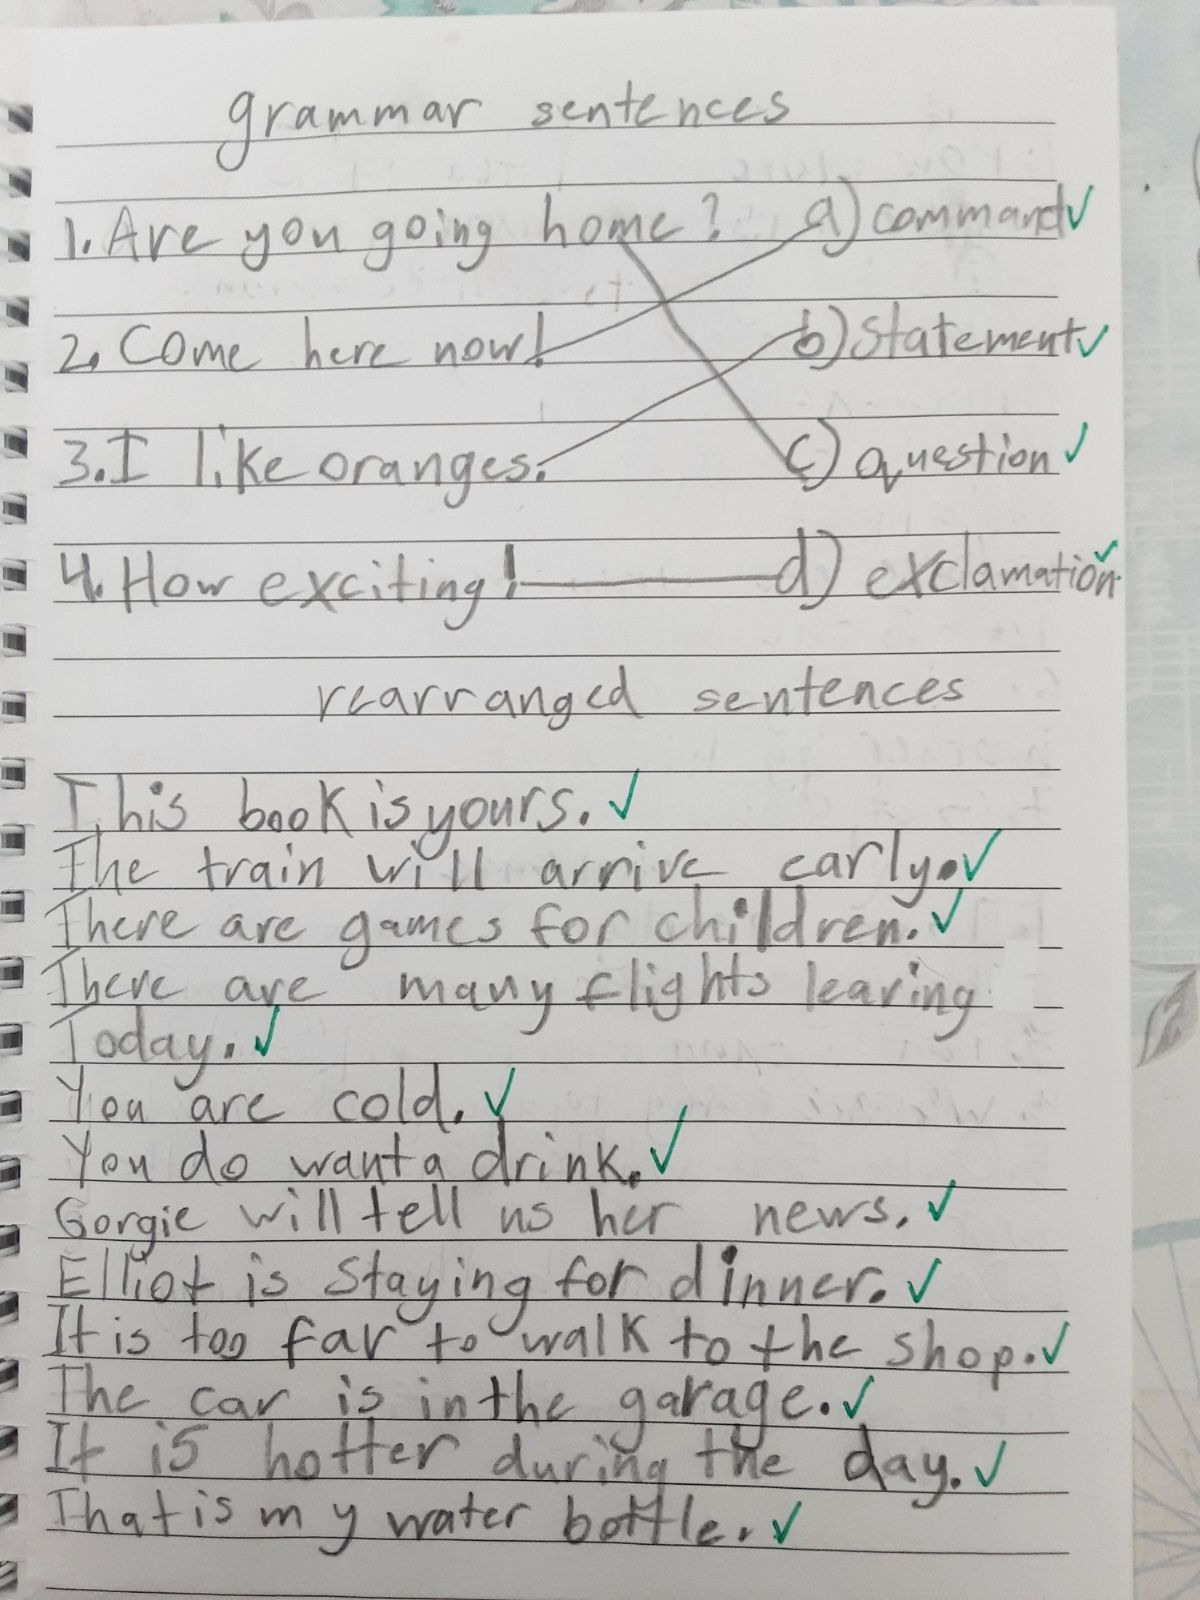 grammar sentences
1. Are you going home? a) command
2. Come here now! b) Statement
3. I like oranges. c) question
4. How exciting! d) exclamation
rearranged sentences
This book is yours.
The train will arrive early.
There are games for children.
There are many flights learing
Today.
You are cold.
You do want a drink.
Gorgie will tell us her news.
Elliot is Staying for dinner.
It is too far to walk to the shop.
The car is in the garage.
It is hotter during the day.
That is my water bottle.